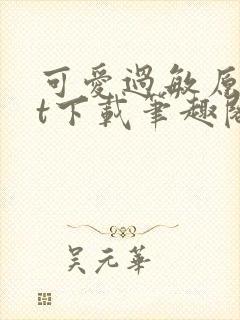 可愛過敏原
t下載筆趣閣
吳元華